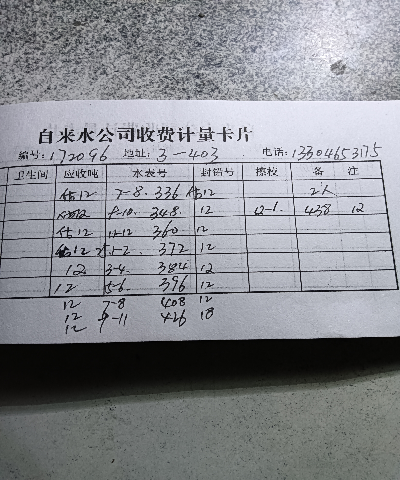 自来水公司收费计量卡片
编号:172096 地址:3-403 电话:13304653175
卫生间 应收吨 水表号 封铅号 擦校 备 注
估12 7-8. 336 估12 2人
12 9-10. 348. 12 12-1. 438 12
估12 11-12 360. 12
估12 1-2. 372 12
12 3-4. 384 12
12 5-6. 396 12
12 7-8 408 12
12 9-11 426 18
12